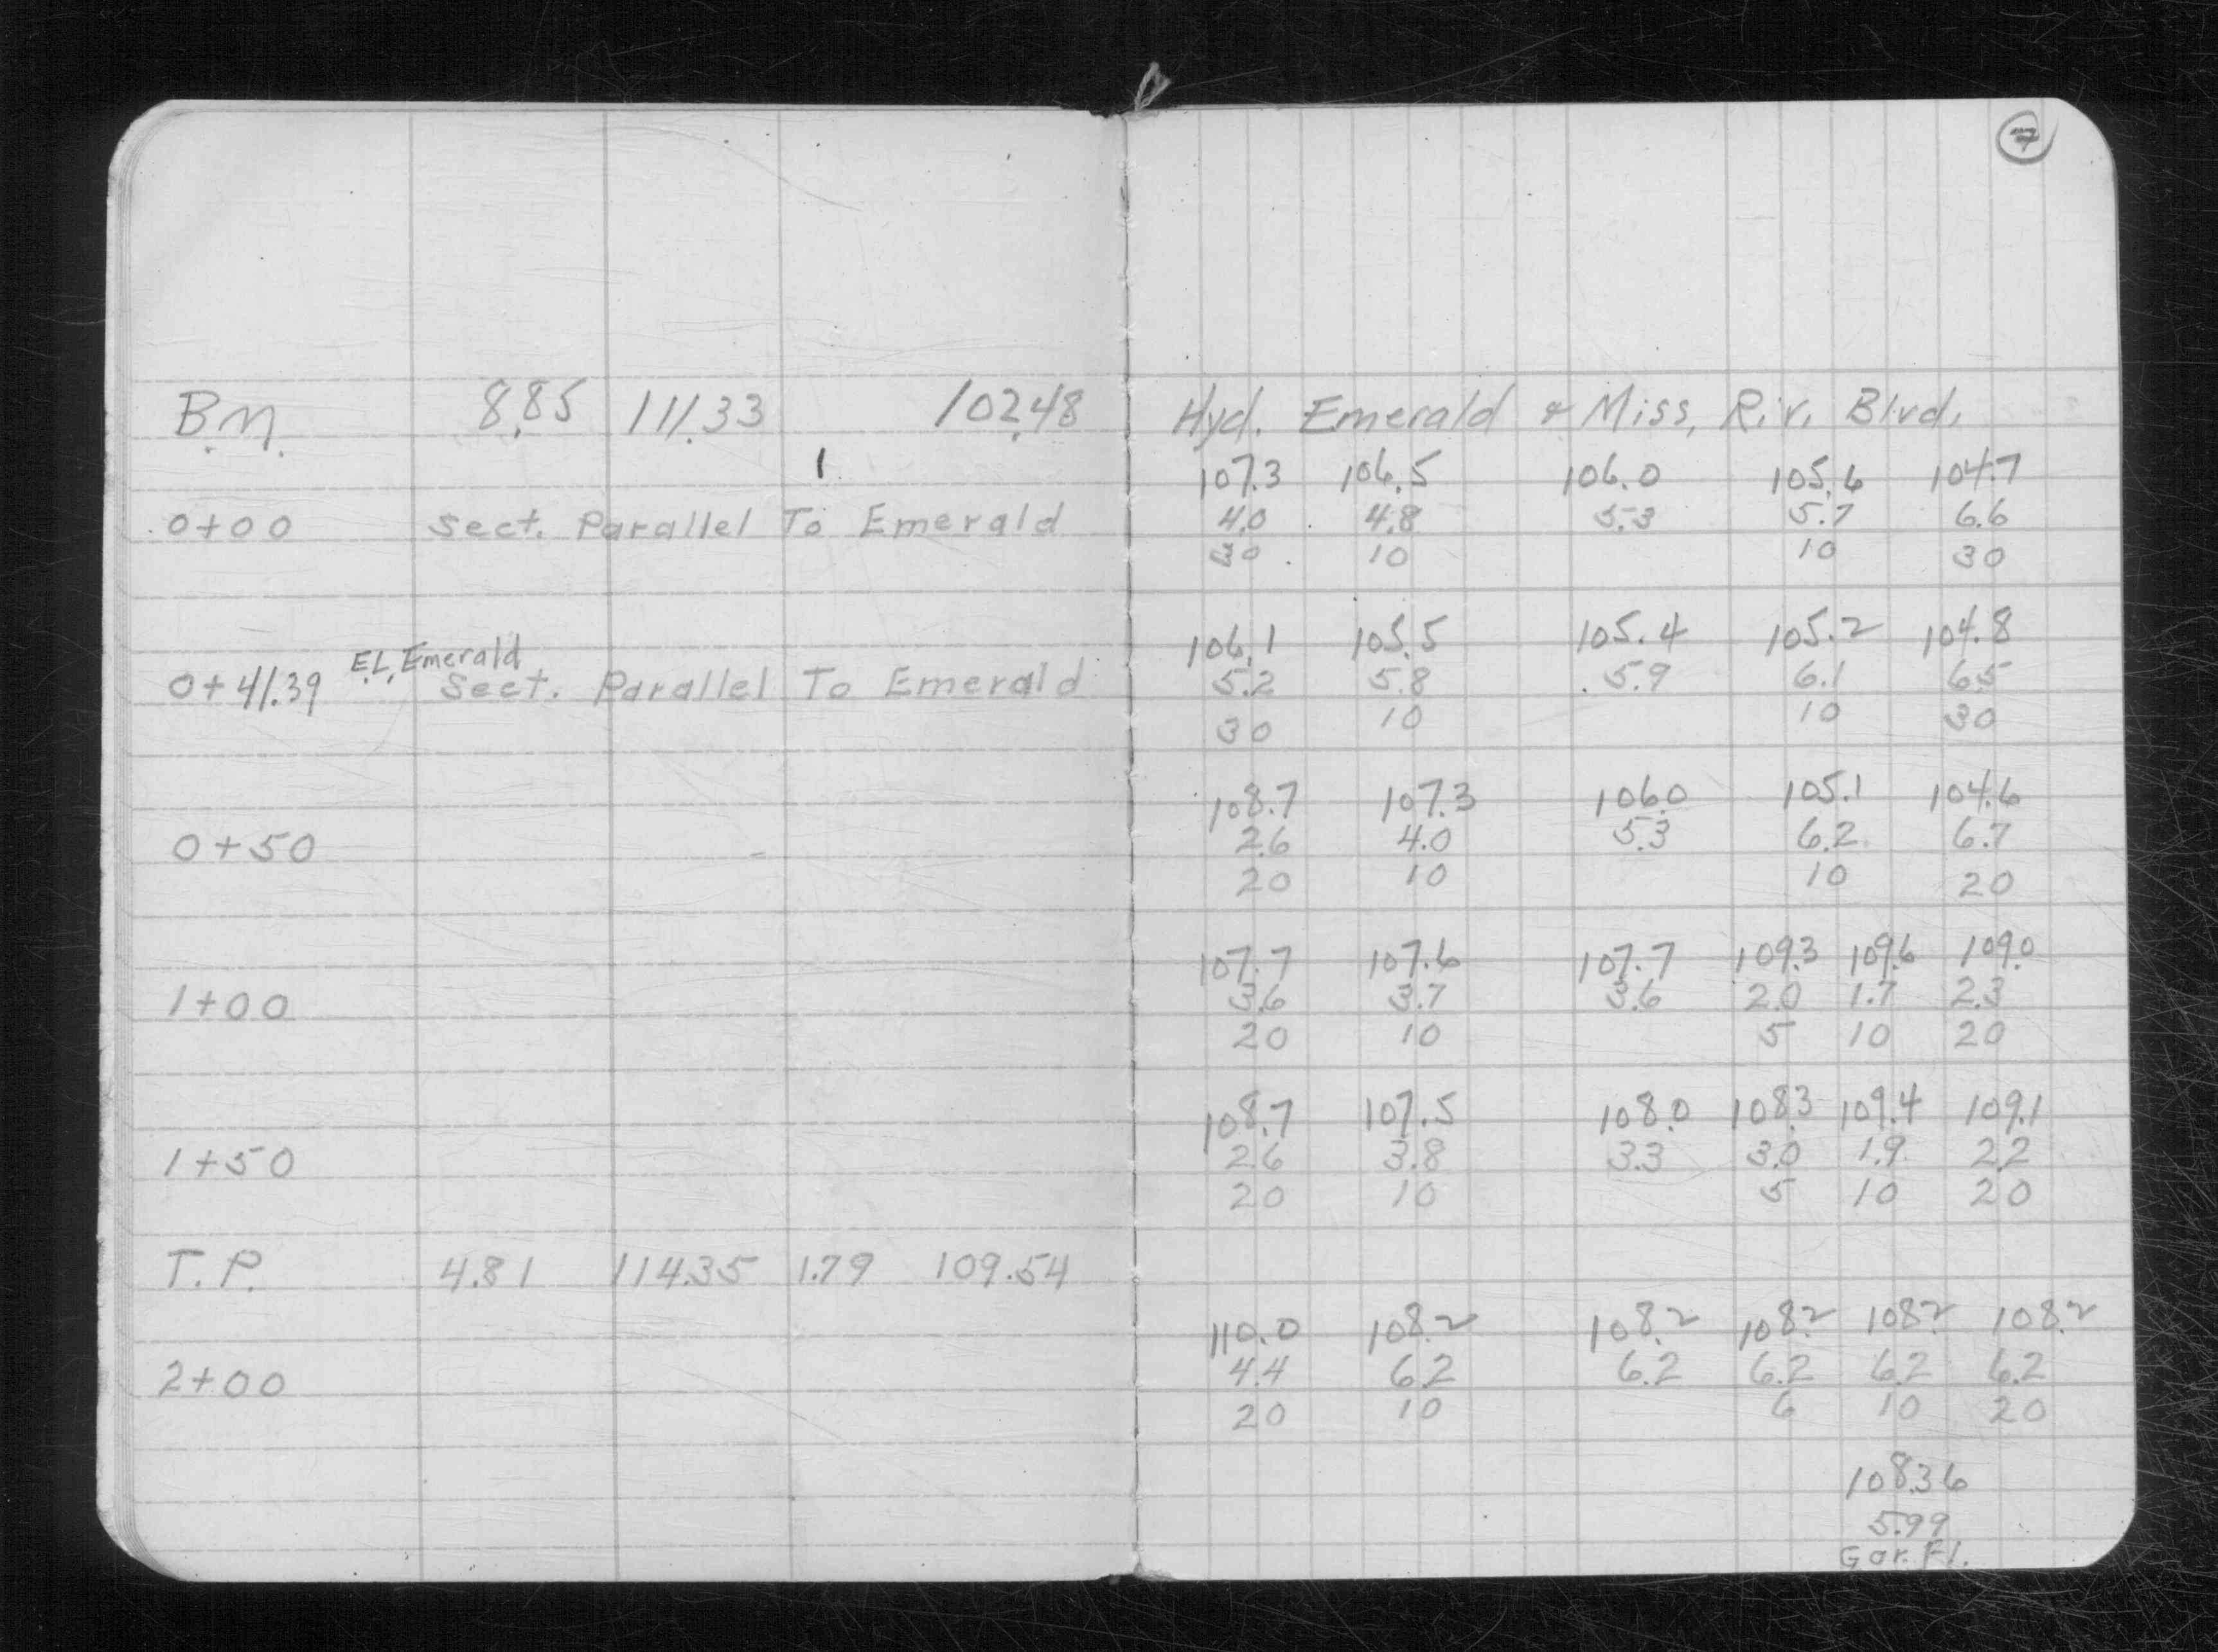 7
B.M. 8.85 111.33 102.48 Hyd. Emerald & Miss. Riv. Blvd.
107.3 106.5 106.0 105.6 104.7
0+00 Sect. Parallel To Emerald 4.0 4.8 5.3 5.7 6.6
30 10 10 30
106.1 105.5 105.4 105.2 104.8
E.L. Emerald
0+41.39 Sect. Parallel To Emerald 5.2 5.8 5.9 6.1 6.5
30 10 10 30
108.7 107.3 106.0 105.1 104.6
0+50 2.6 4.0 5.3 6.2 6.7
20 10 10 20
107.7 107.6 107.7 109.3 109.6 109.0
1+00 3.6 3.7 3.6 2.0 1.7 2.3
20 10 5 10 20
108.7 107.5 108.0 108.3 109.4 109.1
1+50 2.6 3.8 3.3 3.0 1.9 2.2
20 10 5 10 20
T.P. 4.81 114.35 1.79 109.54
110.0 108.2 108.2 108.2 108.2 108.2
2+00 4.4 6.2 6.2 6.2 6.2 6.2
20 10 6 10 20
108.36
5.99
Gar. Fl.